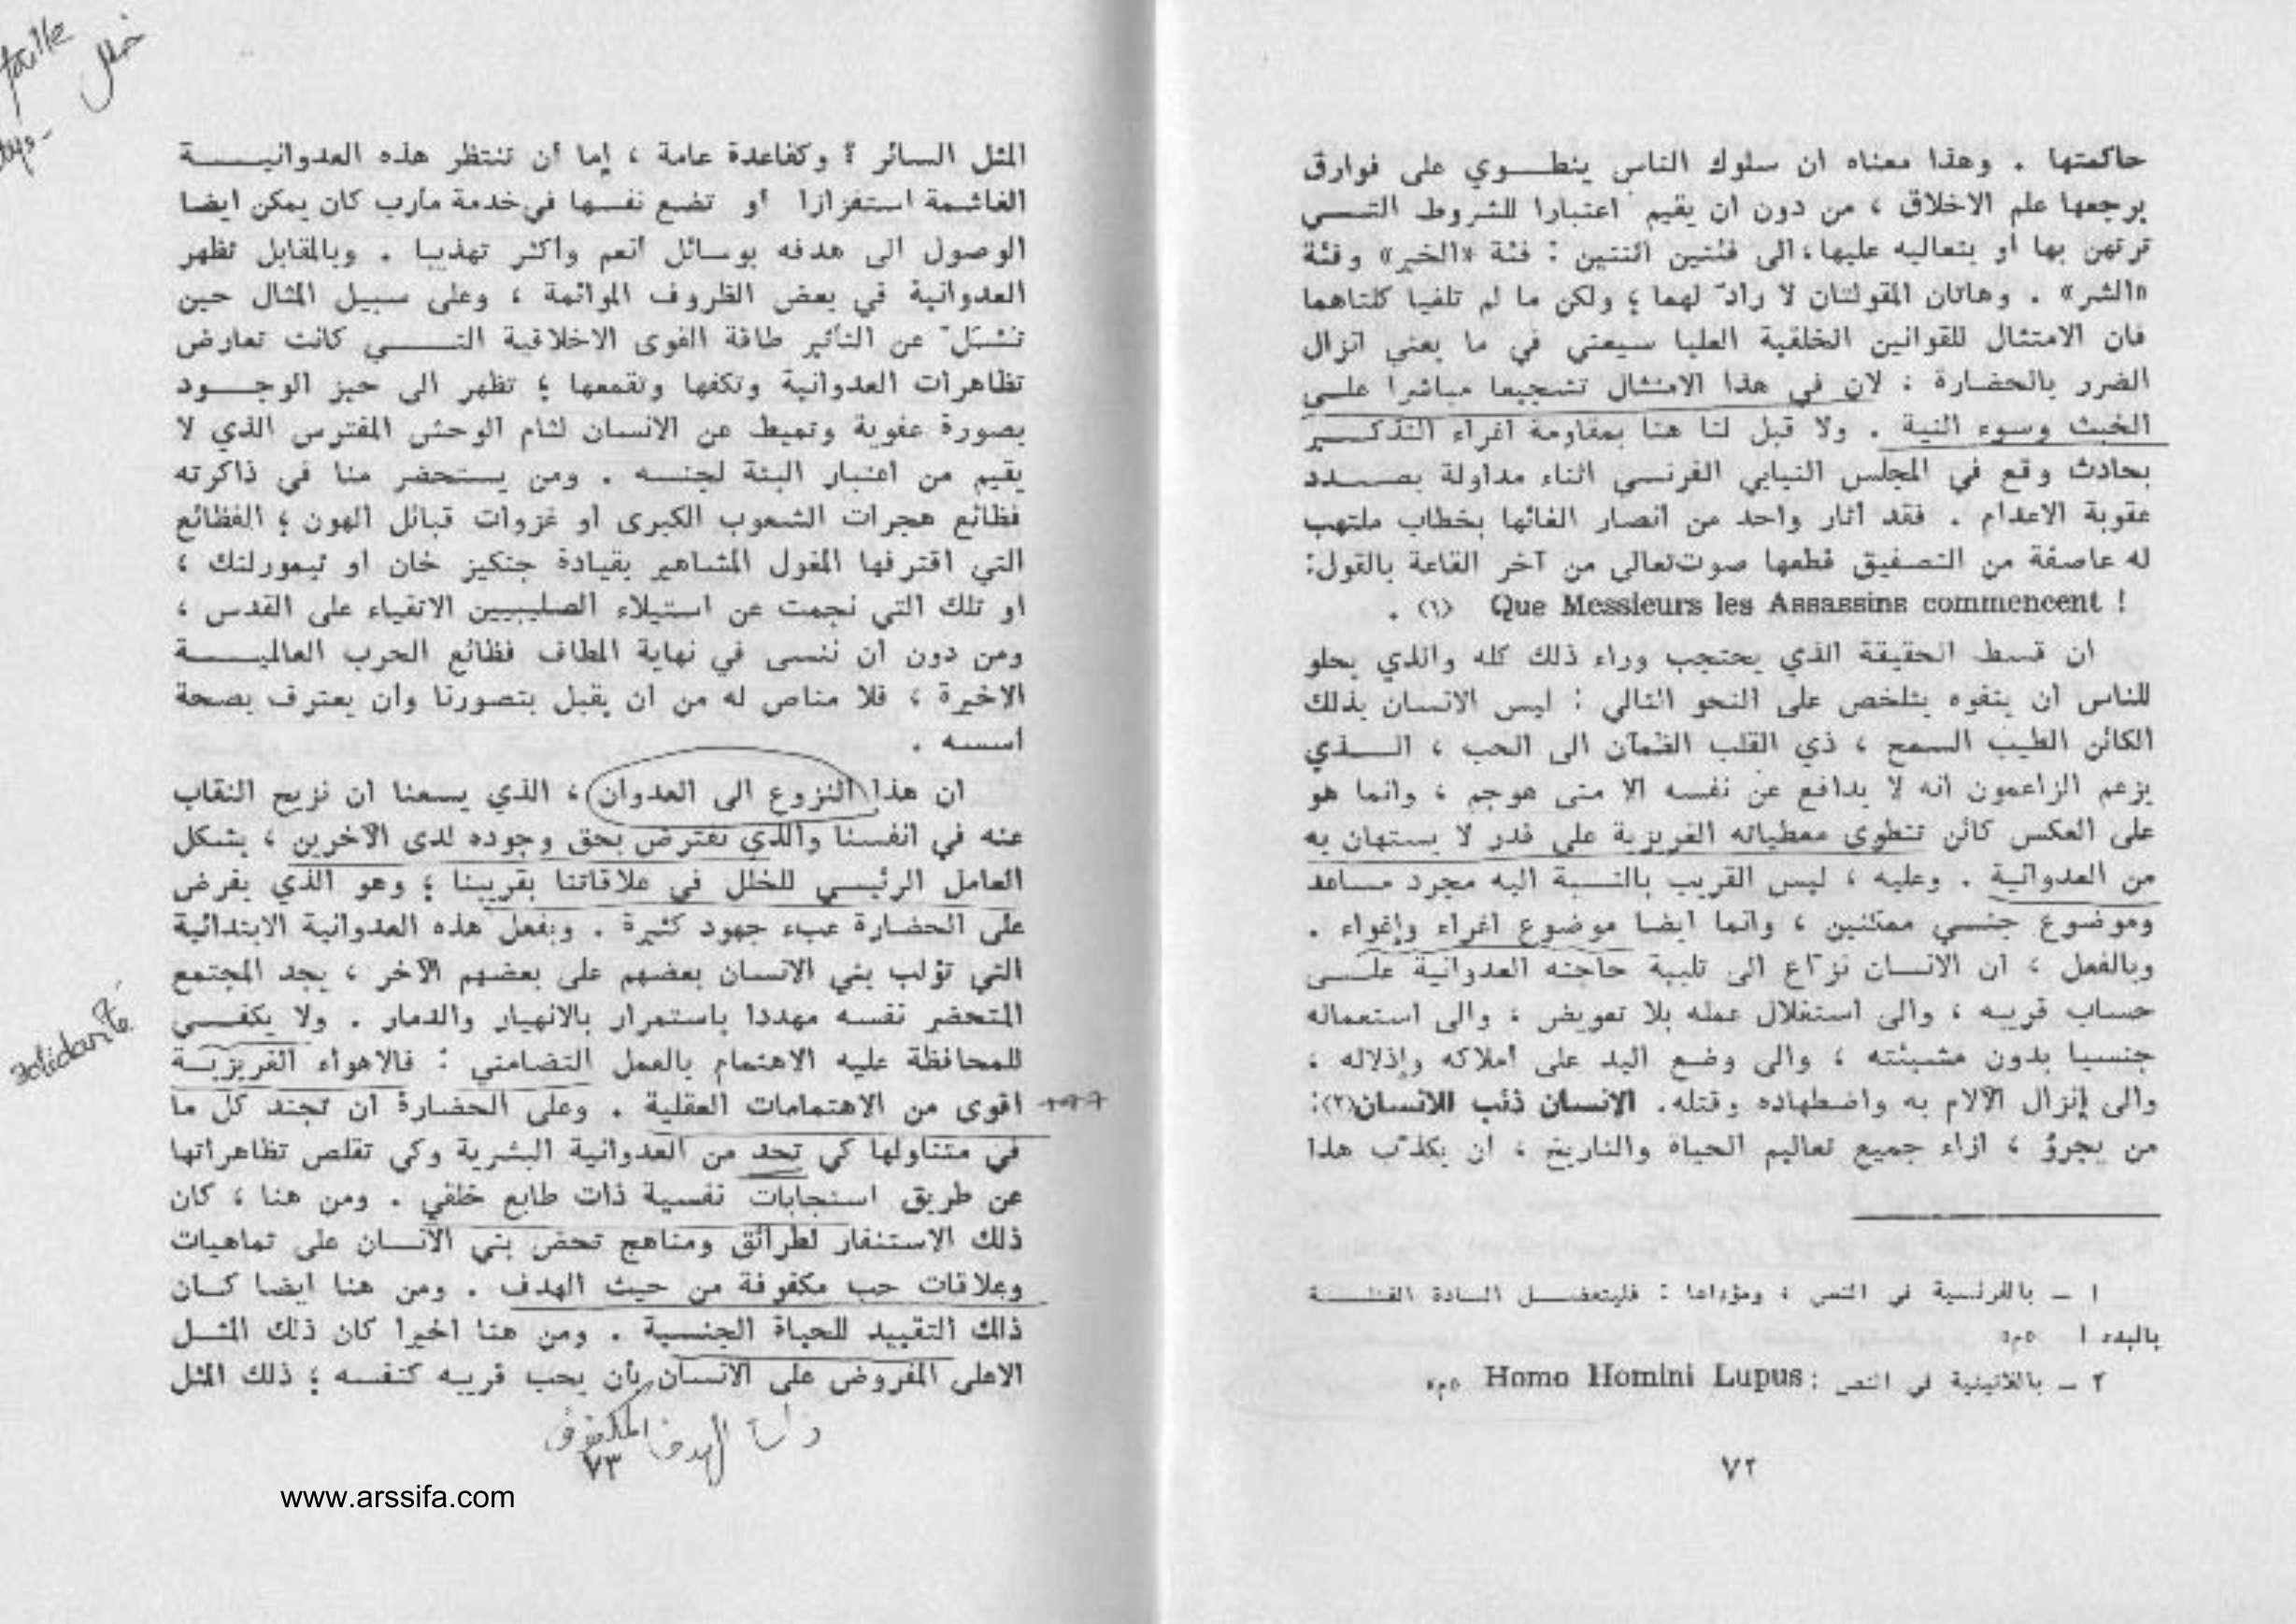 حاكمتها . وهذا معناه ان سلوك الناس ينطـــوي على فوارق
يرجعها علم الاخلاق ، من دون ان يقيم اعتبارا للشروط التـــي
ترتهن بها أو بتعاليه عليها، الى فئتين اثنتين : فئة «الخير» وفئة
«الشر» . وهاتان المقولتان لا رادّ لهما ؛ ولكن ما لم تلغيا كلتاهما
فان الامتثال للقوانين الخلقية العليا سيعني في ما يعني انزال
الضرر بالحضارة ، لان في هذا الامتثال تشجيعا مباشرا علـــى
الخبث وسوء النية . ولا قبل لنا هنا بمقاومة اغراء التذكـــير
بحادث وقع في المجلس النيابي الفرنسي اثناء مداولة بصـــدد
عقوبة الاعدام . فقد أثار واحد من أنصار الغائها بخطاب ملتهب
له عاصفة من التصفيق قطعها صوت تعالى من آخر القاعة بالقول:
Que Messieurs les Assassins commencent ! (١) .
ان قسط الحقيقة الذي يحتجب وراء ذلك كله والذي يحلو
للناس أن يتفوه يتلخص على النحو التالي : ليس الانسان بذلك
الكائن الطيب السمح ، ذي القلب الظمآن الى الحب ، الـــذي
يزعم الزاعمون انه لا يدافع عن نفسه الا متى هوجم ، وانما هو
على العكس كائن تنطوي معطياته الغريزية على قدر لا يستهان به
من العدوانية . وعليه ، ليس القريب بالنسبة اليه مجرد مساعد
وموضوع جنسي ممكنين ، وانما ايضا موضوع اغراء وإغواء .
وبالفعل ، ان الانسان نزّاع الى تلبية حاجته العدوانية علـــى
حساب قريبه ، والى استغلال عمله بلا تعويض ، والى استعماله
جنسيا بدون مشيئته ، والى وضع اليد على أملاكه وإذلاله ،
والى إنزال الآلام به واضطهاده وقتله. الإنسان ذئب للانسان(٢):
من يجرؤ ، ازاء جميع تعاليم الحياة والتاريخ ، ان يكذّب هذا
١ ـ بالفرنسية في النص ، ومؤداها : فليتفضـــل السادة القتلـــة
بالبدء ! «م»
٢ ـ باللاتينية في النص : Homo Homini Lupus «م»
٧٢
المثل السائر ؟ وكقاعدة عامة ، إما أن تنتظر هذه العدوانيـــة
الغاشمة استفزازا او تضع نفسها في خدمة مآرب كان يمكن ايضا
الوصول الى هدفه بوسائل أنعم واكثر تهذيبا . وبالمقابل تظهر
العدوانية في بعض الظروف الموائمة ، وعلى سبيل المثال حين
تنشلّ عن التأثير طاقة القوى الاخلاقية التـــي كانت تعارض
تظاهرات العدوانية وتكفها وتقمعها ؛ تظهر الى حيز الوجـــود
بصورة عفوية وتميط عن الانسان لثام الوحش المفترس الذي لا
يقيم من اعتبار البتة لجنسه . ومن يستحضر منا في ذاكرته
فظائع هجرات الشعوب الكبرى أو غزوات قبائل الهون ؛ الفظائع
التي اقترفها المغول المشاهير بقيادة جنكيز خان او تيمورلنك ،
او تلك التي نجمت عن استيلاء الصليبيين الاتقياء على القدس ،
ومن دون ان ننسى في نهاية المطاف فظائع الحرب العالميـــة
الاخيرة ، فلا مناص له من ان يقبل بتصورنا وان يعترف بصحة
أسسه .
ان هذا النزوع الى العدوان ، الذي يسعنا ان نزيح النقاب
عنه في انفسنا والذي نفترض بحق وجوده لدى الآخرين ، يشكل
العامل الرئيسي للخلل في علاقاتنا بقريبنا ؛ وهو الذي يفرض
على الحضارة عبء جهود كثيرة . وبفعل هذه العدوانية الابتدائية
التي تؤلب بني الانسان بعضهم على بعضهم الآخر ، يجد المجتمع
المتحضر نفسه مهددا باستمرار بالانهيار والدمار . ولا يكفـــي
solidarité
للمحافظة عليه الاهتمام بالعمل التضامني : فالاهواء الغريزيـــة
اقوى من الاهتمامات العقلية . وعلى الحضارة ان تجند كل ما
في متناولها كي تحد من العدوانية البشرية وكي تقلص تظاهراتها
عن طريق استجابات نفسية ذات طابع خلقي . ومن هنا ، كان
ذلك الاستنفار لطرائق ومناهج تحض بني الانسان على تماهيات
وعلاقات حب مكفوفة من حيث الهدف . ومن هنا ايضا كـــان
ذلك التقييد للحياة الجنسية . ومن هنا اخيرا كان ذلك المثـــل
الاعلى المفروض على الانسان بأن يحب قريبه كنفسه ؛ ذلك المثل
الهدف المكفوف
٧٣
www.arssifa.com